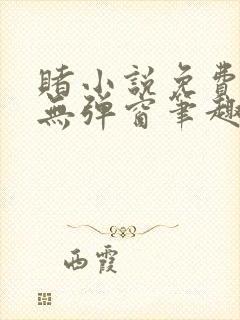 睹小説免費
無彈窗筆趣
西霞